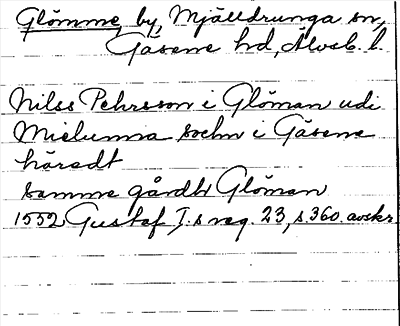 Glömme, by, Mjälldrunga sn,
Gäsene hd, Älvsb. l.
Nilss Pehrsson i Glöman udi
Mielunna sochn i Gäsene
häredt
samme gårdh Glöman
1552 Gustaf I:s reg. 23, s 360. avskr.